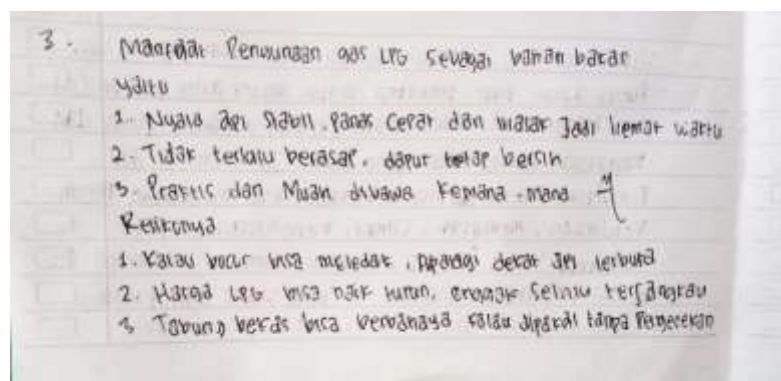 3. Manfaat Penggunaan gas LPG sebagai bahan bakar
yaitu
1. Nyala api stabil, panas cepat dan merata Jadi hemat waktu
2. Tidak terlalu berasap, dapur tetap bersih
3. Praktis dan Muah dibawa kemana-mana 4
Resikonya
1. Kalau bocor bisa meledak, Apalagi dekat api terbuka
2. Harga LPG bisa naik turun, enggak selalu terjangkau
3 Tabung bekas bisa berbahaya kalau dipakai tanpa Pengecekan